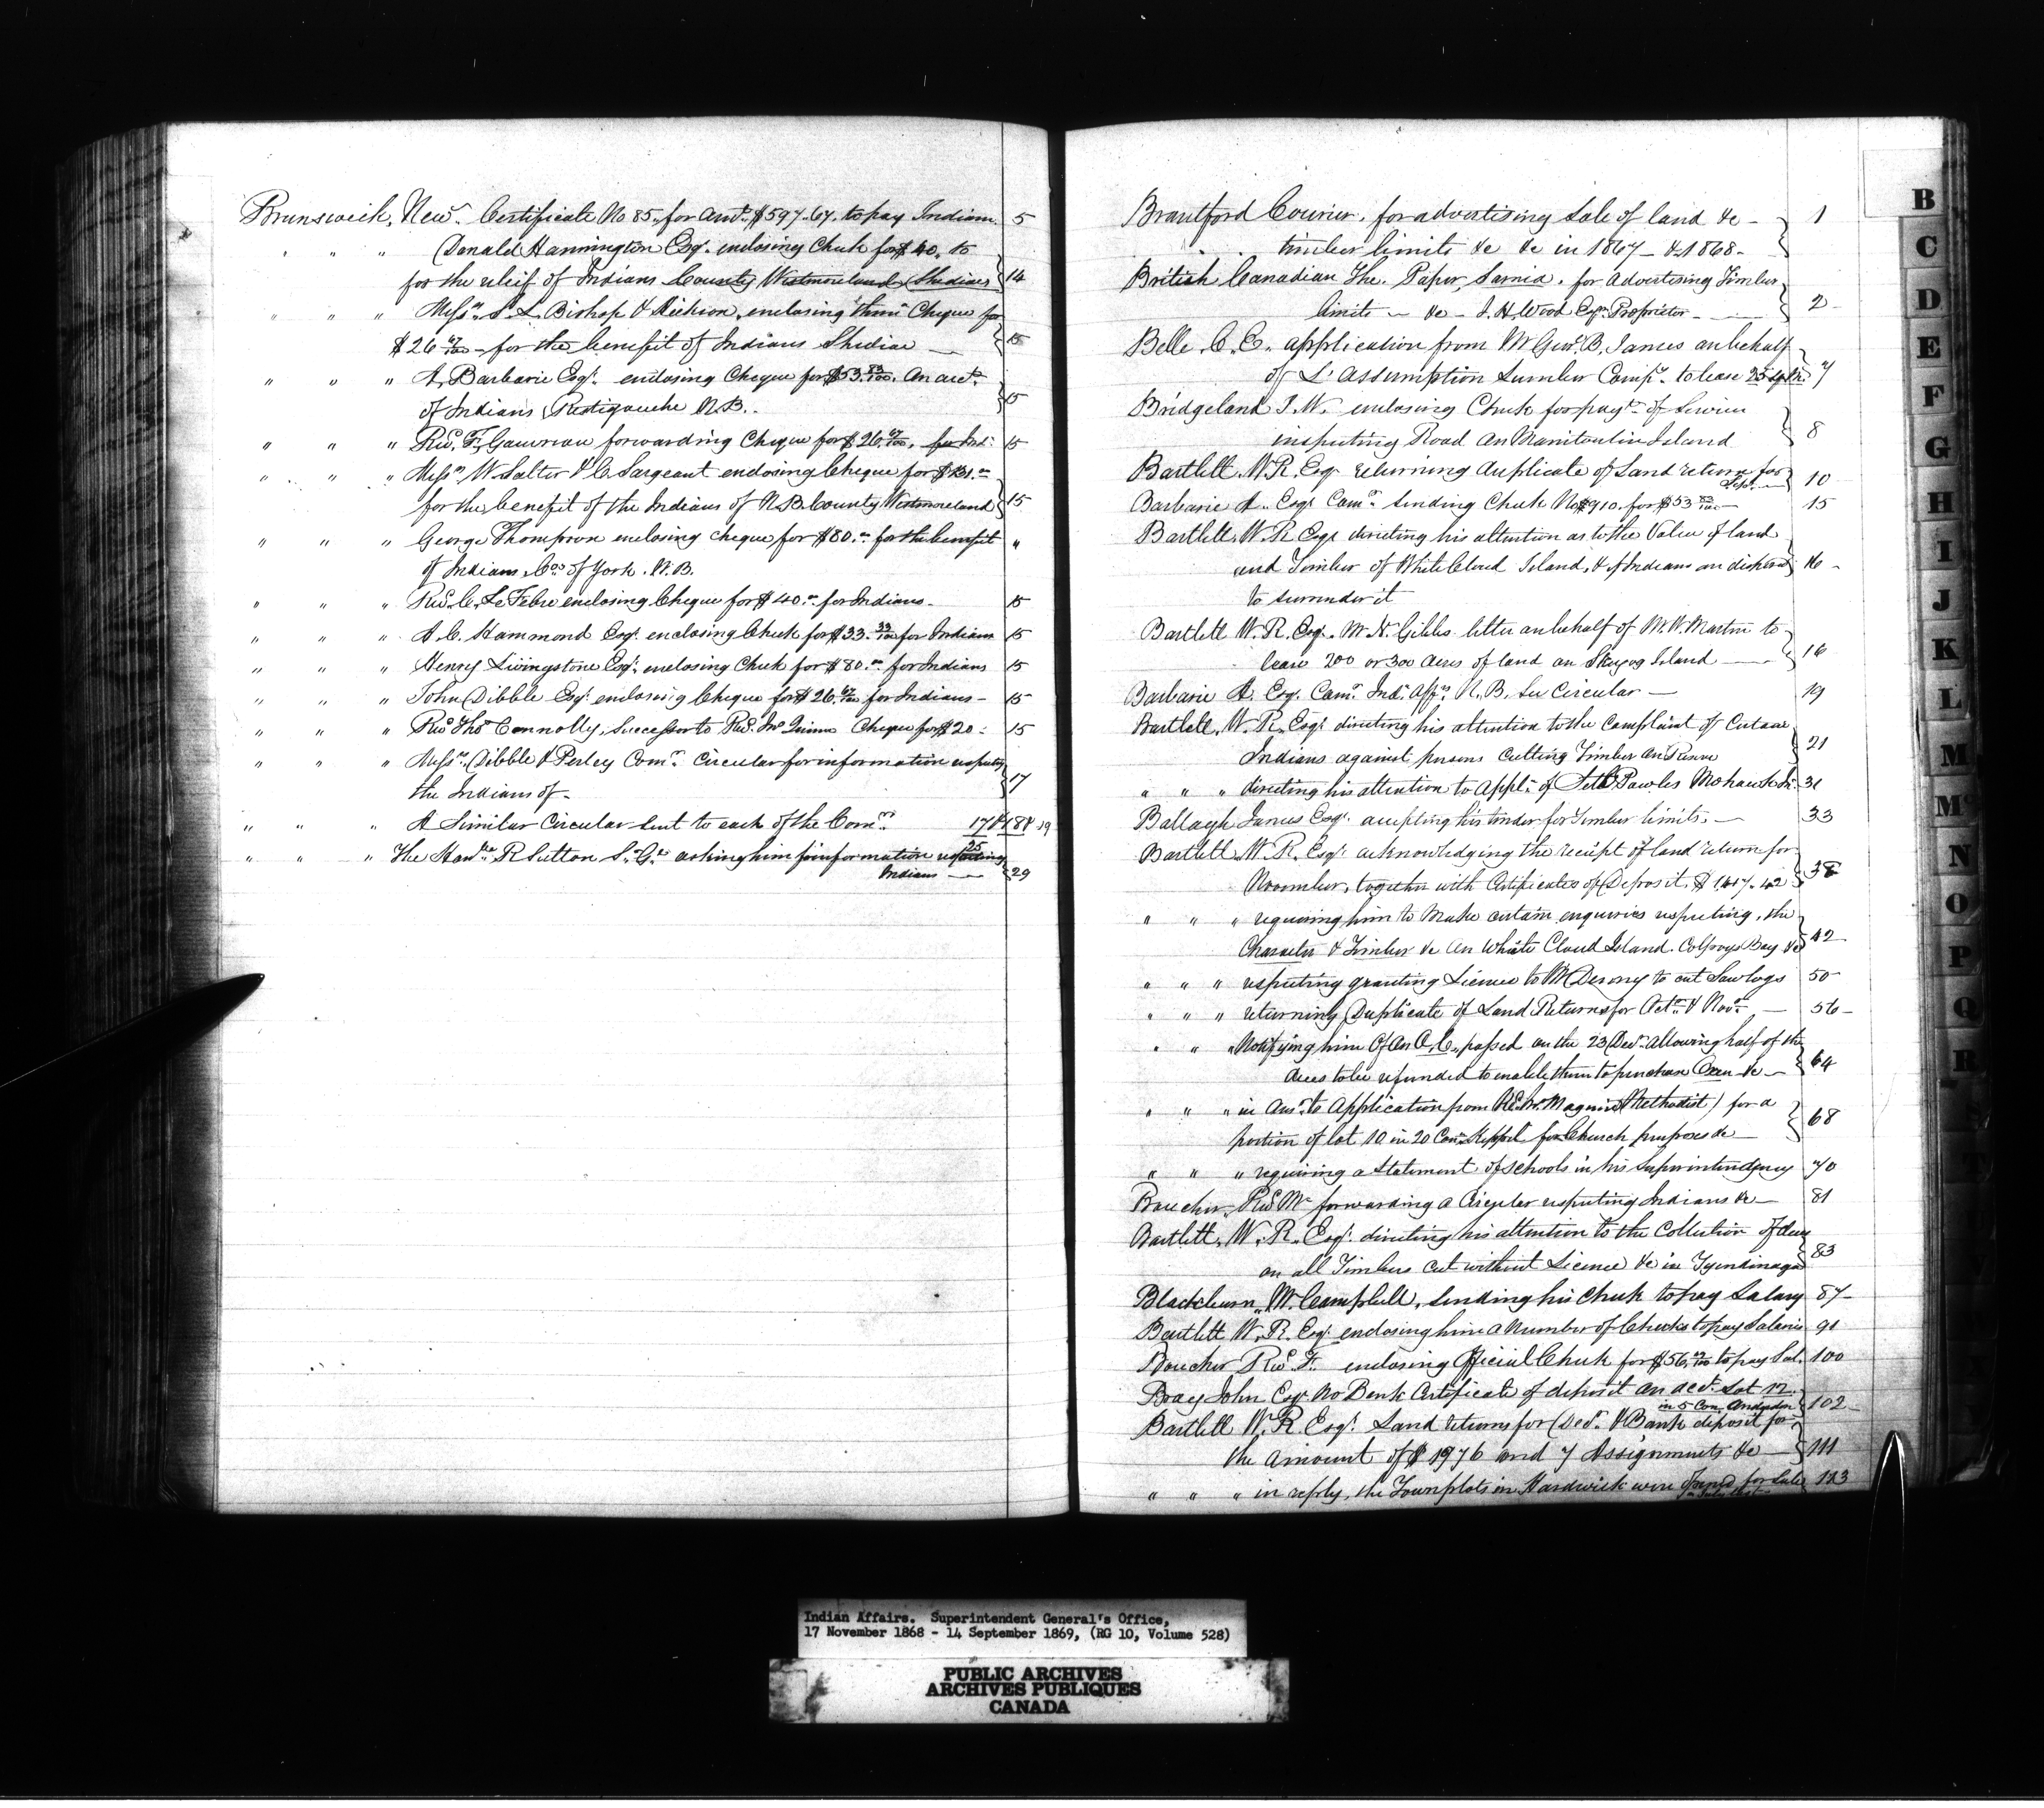 Brunswick, New. Certificate No 85, for Amt. $597.67. to pay Indians. 5
" " " Donald Hannington Esqr. enclosing Check for $40. to
for the relief of Indians County Westmoreland Shediac 14
" " " Messrs. S. L. Bishop & enclosing them Cheque for
$26 67/100 - for the benefit of Indians Shediac — 15
" " " A. Barbarie Esqr. enclosing Cheque for $53.83/100. on acct.
of Indians, Restigouche N.B. 15
" " " Revd. F. Gauvreau forwarding Cheque for $26.67/100. for Ind: 15
" " " Messrs. W. Salter & C. Sargeant enclosing Cheque for
for the benefit of the Indians of N.B. County Westmoreland 15
" " " George Thompson enclosing cheque for $80.00 for the benefit "
of Indians, Co. of York. N.B.
" " " Revd. C. Le Febre enclosing Cheque for $40.00 for Indians - 15
" " " A. C. Hammond Esqr. enclosing Check for $33.33/100 for Indians 15
" " " Henry Livingstone Esqr. enclosing Check for $80.00 for Indians 15
" " " John Dibble Esqr. enclosing Cheque for $26.67/100 for Indians - 15
" " " Revd Thos Connolly, Successor to Revd. Jno Quinn Cheque for $20 : 15
" " " Messrs. Dibble & Perley Comrs. Circular for information respecting
the Indians of - 17
" " " A Similar Circular sent to each of the Comrs. 17 & 18 & 19
" " " The Honble R Sutton S. G. asking him for information respecting 25
Indians — 29
Brantford Courier. for advertising Sale of land &c - 1
timber limits &c &c in 1867 - & 1868 -
British Canadian The. Paper, Sarnia. for Advertising Timber
limits — &c — J. H. Wood Esqr. Proprietor — 2
Belle, C. E. application from Mr Geo. B. James on behalf
of L'Assumption Lumber Compy. to lease 25 7
Bridgeland J. W. enclosing Check for payt. of Services
inspecting Road on Manitoulin Island 8
Bartlett. W. R. Esqr returning duplicate of Land return for
Sept. — 10
Barbarie A. Esqr Comr. sending Check No 910. for $53 83/100 — 15
Bartlett, W. R Esqr directing his attention as to the Value of land
and Timber of White Cloud Island, & if Indians are disposed 16 -
to surrender it
Bartlett W. R. Esqr. Mr N. Gibbs letter on behalf of M. W. Martin to
lease 200 or 300 acres of land on Scugog Island — 16
Barbarie A. Esqr. Comr. Ind. Affrs. N. B. See Circular — 19
Bartlett, W. R. Esqr directing his attention to the Complaint of Certain
Indians against persons Cutting Timber on Reserve 21
" " " directing his attention to Appln. of Seth Powles Mohawk In: 31
Ballagh James Esqr. accepting his tender for Timber limits, — 33
Bartlett, W. R. Esqr. acknowledging the receipt of land return for
November, together with Certificates of Deposit, 38
" " " requiring him to make certain enquiries respecting, the
Character & Timber &c on White Cloud Island. Colpoys Bay &c 42
" " " respecting granting License to Mr to cut Saw logs 50
" " " returning Duplicate of Land Returns for Octr. & Novr. — 56 -
" " " Notifying him Of an O. C., passed on the 23 Decr. allowing half of the
dues to be refunded to enable them to purchase Oxen &c — 64
" " " in Ansr. to Application from Revd. Mr. (Methodist) for a
portion of lot 10 in 20 Con. Keppel for Church purposes &c — 68
" " " requiring a Statement of Schools in his Superintendency 70
Boucher, Revd Mr forwarding a Circular respecting Indians &c — 81
Bartlett, W. R. Esqr. directing his attention to the Collection of dues
on all Timbers cut without License &c in Tyendinaga 83
Blackburn, W. Campbell, sending his Check to pay Salary 87 -
Bartlett W. R. Esqr. enclosing him a Number of Checks to pay Salaries 91
Boucher Revd. F. enclosing Official Check for to pay Sal. 100
Bray John Esqr No Bank Certificate of deposit on acct. Lot 12.
in 5 Con. 102 -
Bartlett W. R. Esqr. Land returns for Decr. & Bank deposit for
the amount of $1976 and 7 Assignments &c — 111
" " " in reply, the Town plots in Hardwick were opened for Sale 113
B
C
D
E
F
G
H
I
J
K
L
M
Mc
N
O
P
Q
R
S
T
Indian Affairs. Superintendent General's Office,
17 November 1868 - 14 September 1869, (RG 10, Volume 528)
PUBLIC ARCHIVES
ARCHIVES PUBLIQUES
CANADA